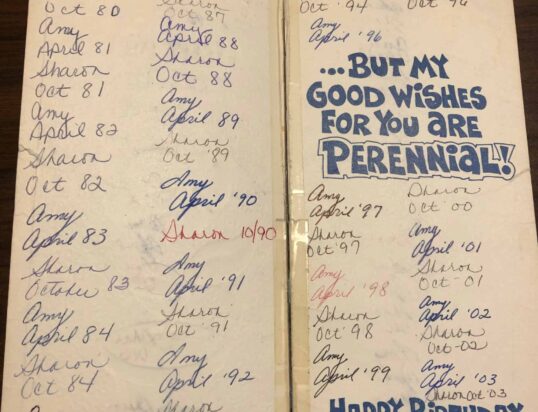 Oct 80
Amy
April 81
Sharon
Oct 81
Amy
April 82
Sharon
Oct 82
Amy
April 83
Sharon
October 83
Amy
April 84
Sharon
Oct 84
Sharon
Oct 87
Amy
April 88
Sharon
Oct 88
Amy
April 89
Sharon
Oct '89
Amy
April '90
Sharon 10/90
Amy
April '91
Sharon
Oct '91
Amy
April '92
Sharon
Oct '94
Oct '96
Amy
April '96
...BUT MY
GOOD WISHES
FOR YOU ARE
PERENNIAL!
Amy
April '97
Sharon
Oct '97
Amy
April '98
Sharon
Oct '98
Amy
April '99
Sharon
Oct '00
Amy
April '01
Sharon
Oct-01
Amy
April '02
Sharon
Oct-02
Amy
April '03
Sharon Oct '03
HAPPY BIRTHDAY